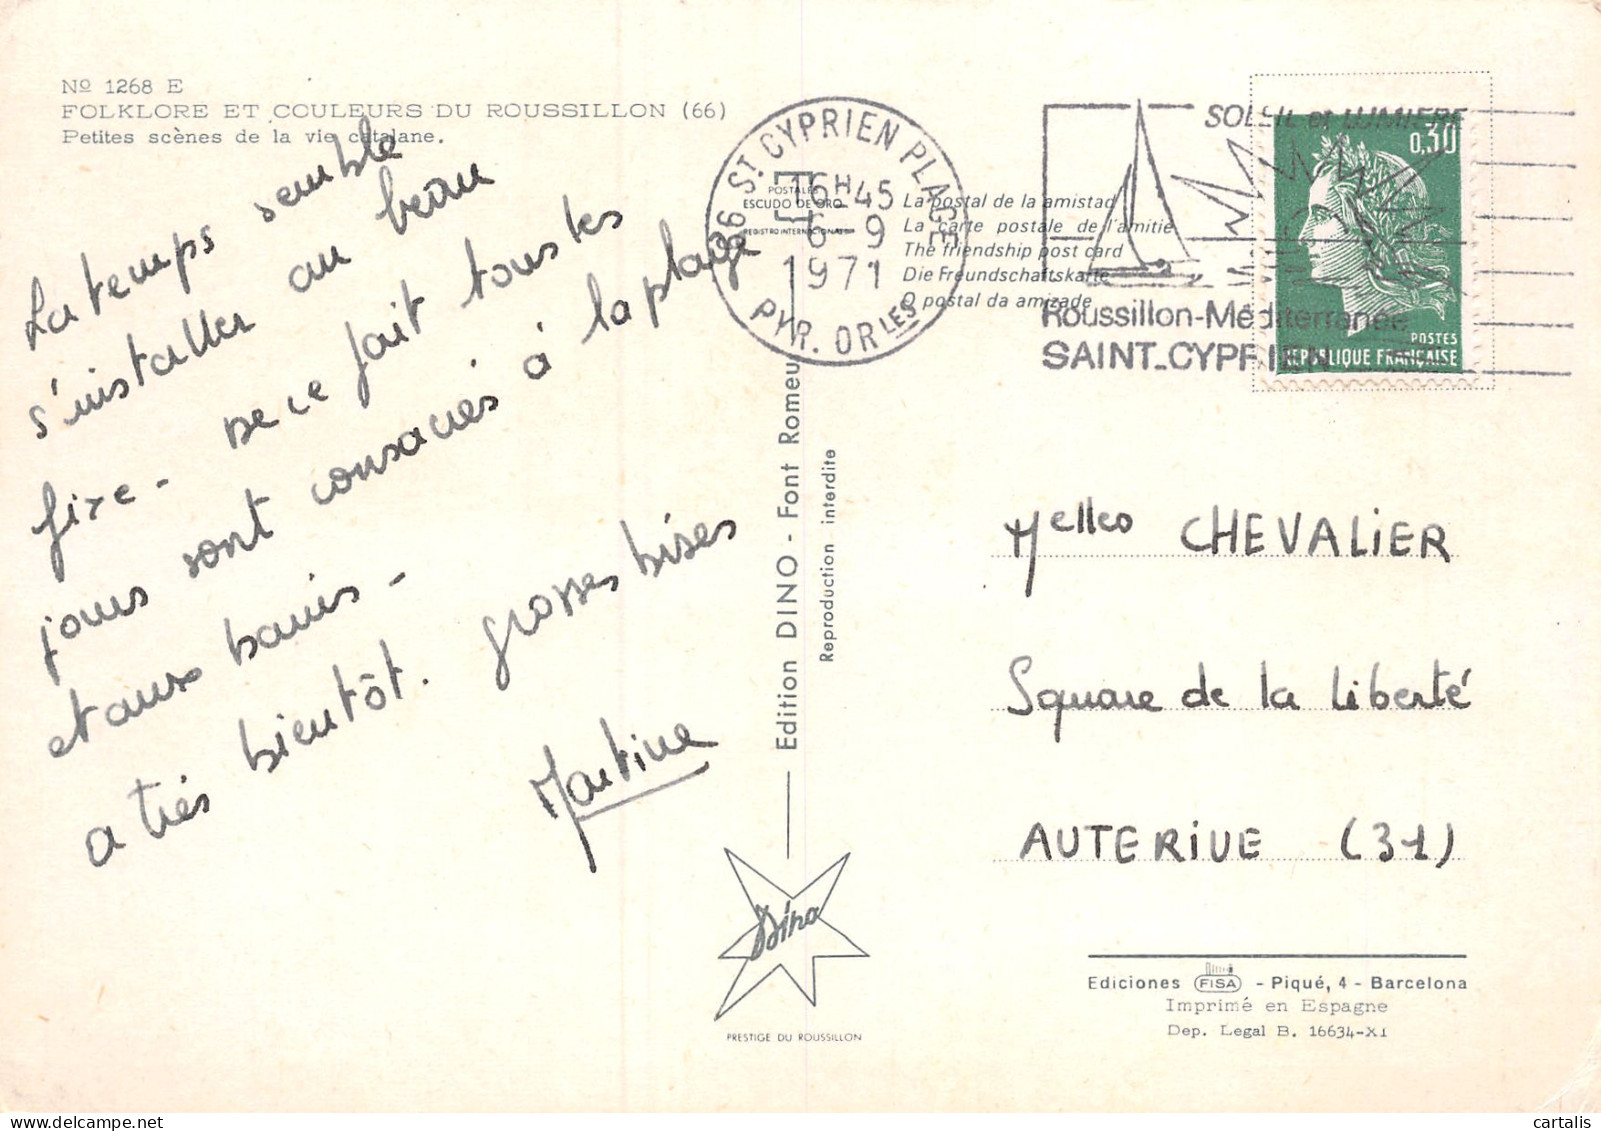 Nº 1268 E
FOLKLORE ET COULEURS DU ROUSSILLON (66)
Petites scènes de la vie catalane.
Le temps semble
s'installer au beau
fixe - De ce fait tous les
jours sont consacrés à la plage
et aux bains -
a très bientôt. grosses bises
Martine
66 ST CYPRIEN PLAGE
16H45
6-9
1971
PYR. ORLES
POSTALES
ESCUDO DE ORO
REGISTRO INTERNACIONAL
La postal de la amistad
La carte postale de l'amitié
The friendship post card
Die Freundschaftskarte
O postal da amizade
SOLEIL et LUMIERE
Roussillon-Méditerranée
SAINT-CYPRIEN
0,30
POSTES
REPUBLIQUE FRANÇAISE
Edition DINO - Font Romeu
Reproduction interdite
Melles CHEVALIER
Square de la Liberté
AUTERIVE (31)
Dino
PRESTIGE DU ROUSSILLON
Ediciones FISA - Piqué, 4 - Barcelona
Imprimé en Espagne
Dep. Legal B. 16634-XI
cartalis - delcampe.net